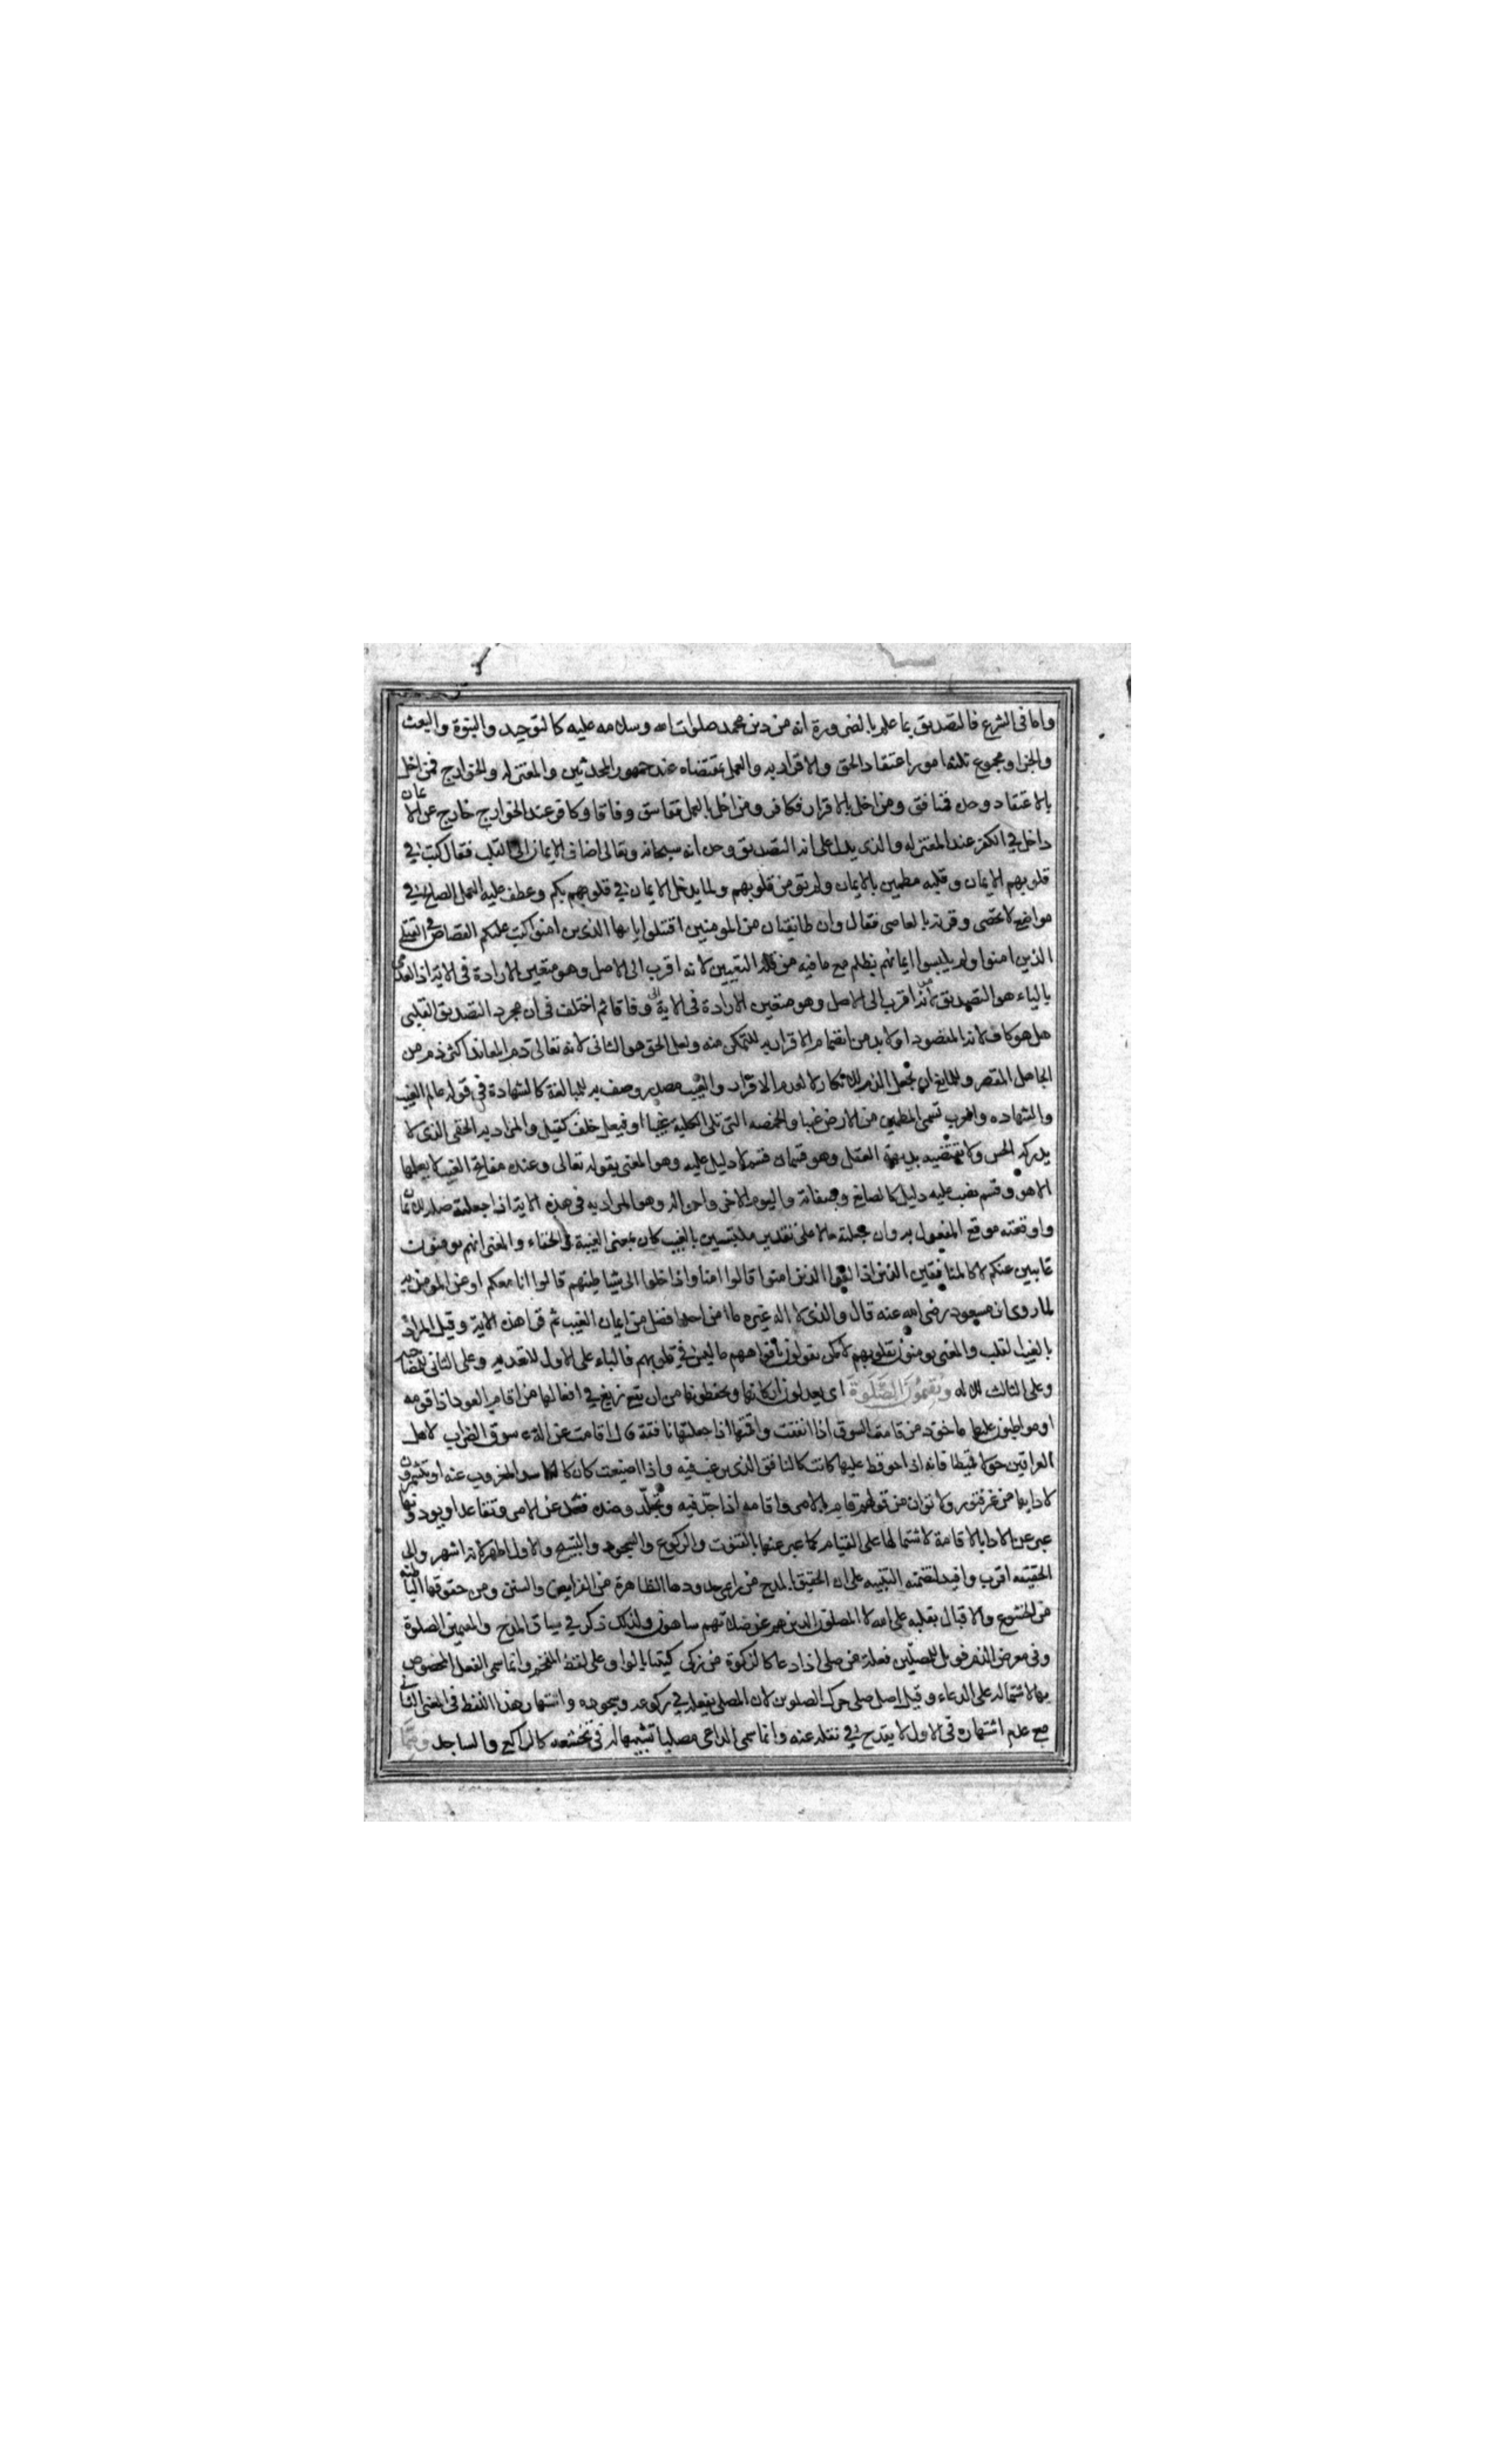 واما فى الشرع فالتصديق بما علم بالضرورة انه من دين محمد صلوات الله وسلامه عليه كالتوحيد والنبوة والبعث
والجزا ومجموع ثلثة امور اعتقاد الحق والاقرار به والعمل بمقتضاه عند جمهور المحدثين والمعتزله والخوارج فمن اخل
بالاعتقاد وحده فمنافق ومن اخل بالاقرار فكافر ومن اخل بالعمل ففاسق وفاقا وكافر عند الخوارج خارج عن الايمان
داخل في الكفر عند المعتزله والذى يدل على انه التصديق وحده انه سبحانه وتعالى اضاف الايمان الى القلب فقال كتب في
قلوبهم الايمان وقلبه مطمين بالايمان ولم تؤمن قلوبهم ولما يدخل الايمان في قلوبكم وعطف عليه العمل الصالح في
مواضع لا تحصى وقرنه بالمعاصى فقال وان طائفتان من المومنين اقتتلوا يا يها الذين امنوا كتب عليكم القصاص في القتلى
الذين امنوا ولم يلبسوا ايمانهم بظلم مع ما فيه من قلة التغيير لانه اقرب الى الاصل وهو متعين الارادة فى الاية اذ المعدى
بالباء هو التصديق لانه اقرب الى الاصل وهو متعين الارادة فى الاية وفاقا ثم اختلف فى ان مجرد التصديق القلبى
هل هو كاف لانه المقصود او لا بد من انضمام الاقرار به للمتمكن منه ولعل الحق هو الثانى لانه تعالى ذم المعاند اكثر ذم من
الجاهل المقصر وللمانع ان يجعل الذم للانكار لا لعدم الاقرار والغيب مصدر وصف به للمبالغة كالشهادة فى قوله عالم الغيب
والشهاده والعرب تسمى المطمين من الارض غيبا والخمصه التى تلى الكلية غيبا او فيعل خفف كقيل والمراد به الخفى الذى لا
يدركه الحس ولا تقتضيه بديهة العقل وهو قسمان قسم لا دليل عليه وهو المعنى بقوله تعالى وعنده مفاتح الغيب لا يعلمها
الا هو وقسم نصب عليه دليل كالصانع وصفاته واليوم الاخر واحواله وهو المراد به فى هذه الاية اذا جعلته صلة للايمان
واوقعته موقع المفعول به وان جعلته حالا على تقدير ملتبسين بالغيب كان بمعنى الغيبة والخفاء والمعنى انهم يومنون
غايبين عنكم لا كالمنافقين الذين اذا لقوا الذين امنوا قالوا امنا واذا خلوا الى شياطينهم قالوا انا معكم او عن المومن به
لما روى ان مسعود رضى الله عنه قال والذى لا اله غيره ما امن احد افضل من ايمان الغيب ثم قرا هذه الاية وقيل المراد
بالغيب القلب والمعنى يومنون بقلوبهم لا كمن يقولون بافواههم ما ليس في قلوبهم فالباء على الاول للتعديه وعلى الثانى للمصاحبه
وعلى الثالث للاله ويقيمون الصلوة اى يعدلون اركانها ويحفظونها من ان يقع زيغ في افعالها من اقام العود اذا قومه
او يواظبون عليها ماخوذ من قامت السوق اذا نفقت واقمتها اذا جعلتها نافقة قال اقامت غزالة سوق الضراب لاهل
العراقين حولا قميطا فانه اذا حوفظ عليها كانت كالنافق الذى يرغب فيه واذا اضيعت كان كالكاسد المرغوب عنه او يتشمرون
لادايها من غير فتور ولا توان من قولهم قام بالامر واقامه اذا جد فيه وتجلد وضده قعد عن الامر وتقاعد او يودونها
عبر عن الادا بالاقامة لاشتمالها على القيام كما عبر عنها بالقنوت والركوع والسجود والتسبيح والاول اظهر لانه اشهر والى
الحقيقه اقرب وافيد لتضمنه التنبيه على ان الحقيق بالمدح من راعى حدودها الظاهرة من الفرايض والسنن ومن حقوقها الباطنه
من الخشوع والاقبال بقلبه على الله لا المصلون الذين هم عن صلاتهم ساهون ولذلك ذكر في سياق المدح والمقيمين الصلوة
وفى معرض الذم فويل للمصلين فعلة من صلى اذا دعا كالزكوة من زكى كتبتا بالواو على لفظ المفخم وانما سمى الفعل المخصوص
بها لاشتماله على الدعاء وقيل اصل صلى حرك الصلوين لان المصلى يفعله في ركوعه وسجوده واشتهار هذا اللفظ فى المعنى الثانى
مع عدم اشتهاره فى الاول لا يقدح في نقله عنه وانما سمى الداعى مصليا تشبيها له فى تخشعه كالراكع والساجد ومما